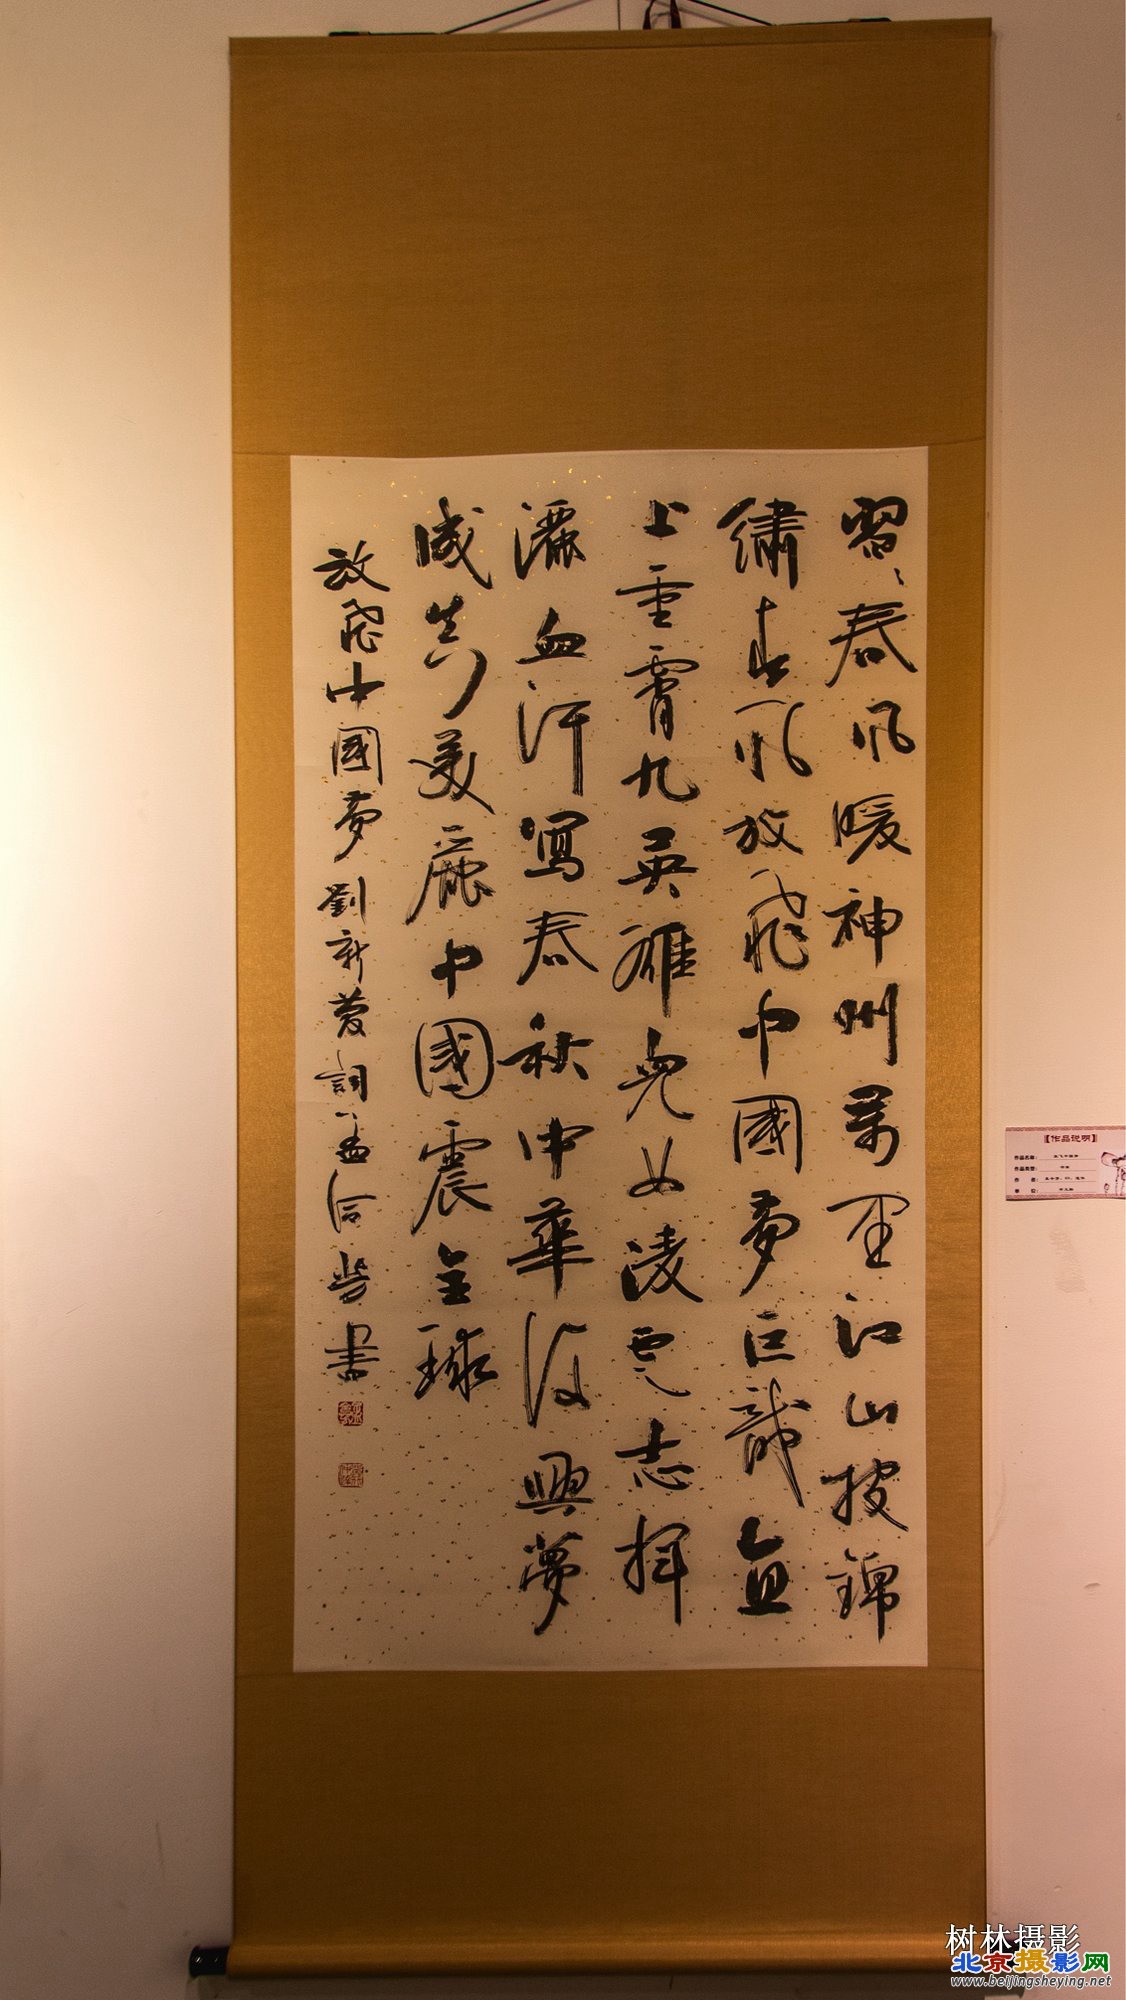 習習春風暖神州萬里江山披錦
繡春風放飛中國夢巨龍直
上重霄九英雄兒女凌雲志揮
灑血汗寫春秋中華復興夢
成真美麗中國震全球
放飛中國夢 劉新 詞 孟 書
【作品说明】
作品名称：
作品类型：
作 者：
单 位：
树林摄影
北京摄影网
www.beijingsheying.net